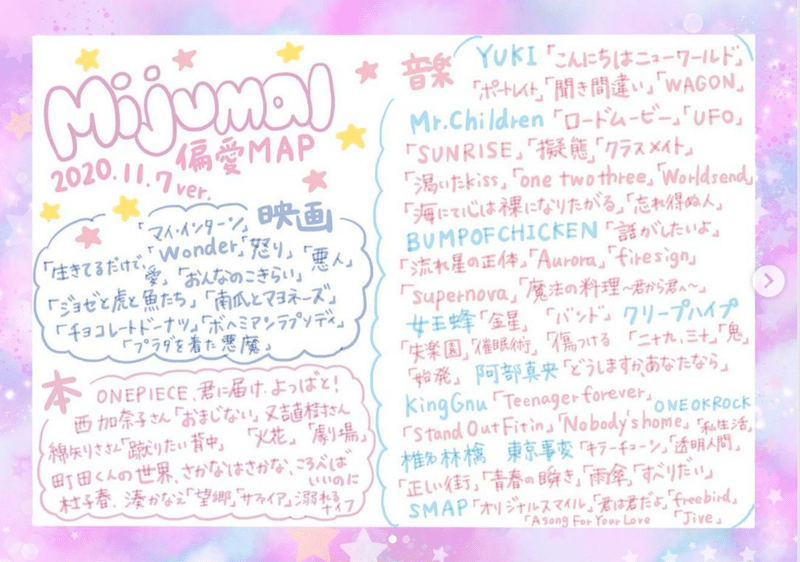 Mijumal
偏愛MAP
2020.11.7
ver.
映画
「マイ・インターン」
「生きてるだけで、愛」「Wonder」「怒り」「悪人」
「おんなのこきらい」
「ジョゼと虎と魚たち」「南瓜とマヨネーズ」
「チョコレートドーナツ」「ボヘミアンラプソディ」
「プラダを着た悪魔」
本
ONEPIECE、君に届け、よつばと!
西加奈子さん「おまじない」又吉直樹さん
綿矢りささん「蹴りたい背中」「火花」「劇場」
町田くんの世界、さかなはさかな、ころべばいいのに
杜子春、湊かなえ「望郷」「サファイア」溺れるナイフ
音楽
YUKI「こんにちはニューワールド」
「ポートレイト」「聞き間違い」「WAGON」
Mr.Children「ロードムービー」「UFO」
「SUNRISE」「擬態」「クラスメイト」
「渇いたkiss」「one two three」「Worlds end」
「海にて心は裸になりたがる」「忘れ得ぬ人」
BUMPOFCHICKEN「話がしたいよ」
「流れ星の正体」「Aurora」「firesign」
「supernova」「魔法の料理〜君から君へ〜」
女王蜂「金星」「バンド」クリープハイプ
「失楽園」「催眠術」「傷つける」「二十九、三十」「鬼」
「始発」阿部真央「どうしますか、あなたなら」
KingGnu「Teenager forever」
ONEOKROCK
「Stand Out Fit in」「Nobody's home」「私生活」
椎名林檎 東京事変「キラーチューン」「透明人間」
「正しい街」「青春の瞬き」「雨傘」「すべりだい」
SMAP「オリジナルスマイル」「君は君だよ」「freebird」
「A song For Your Love」「Jive」